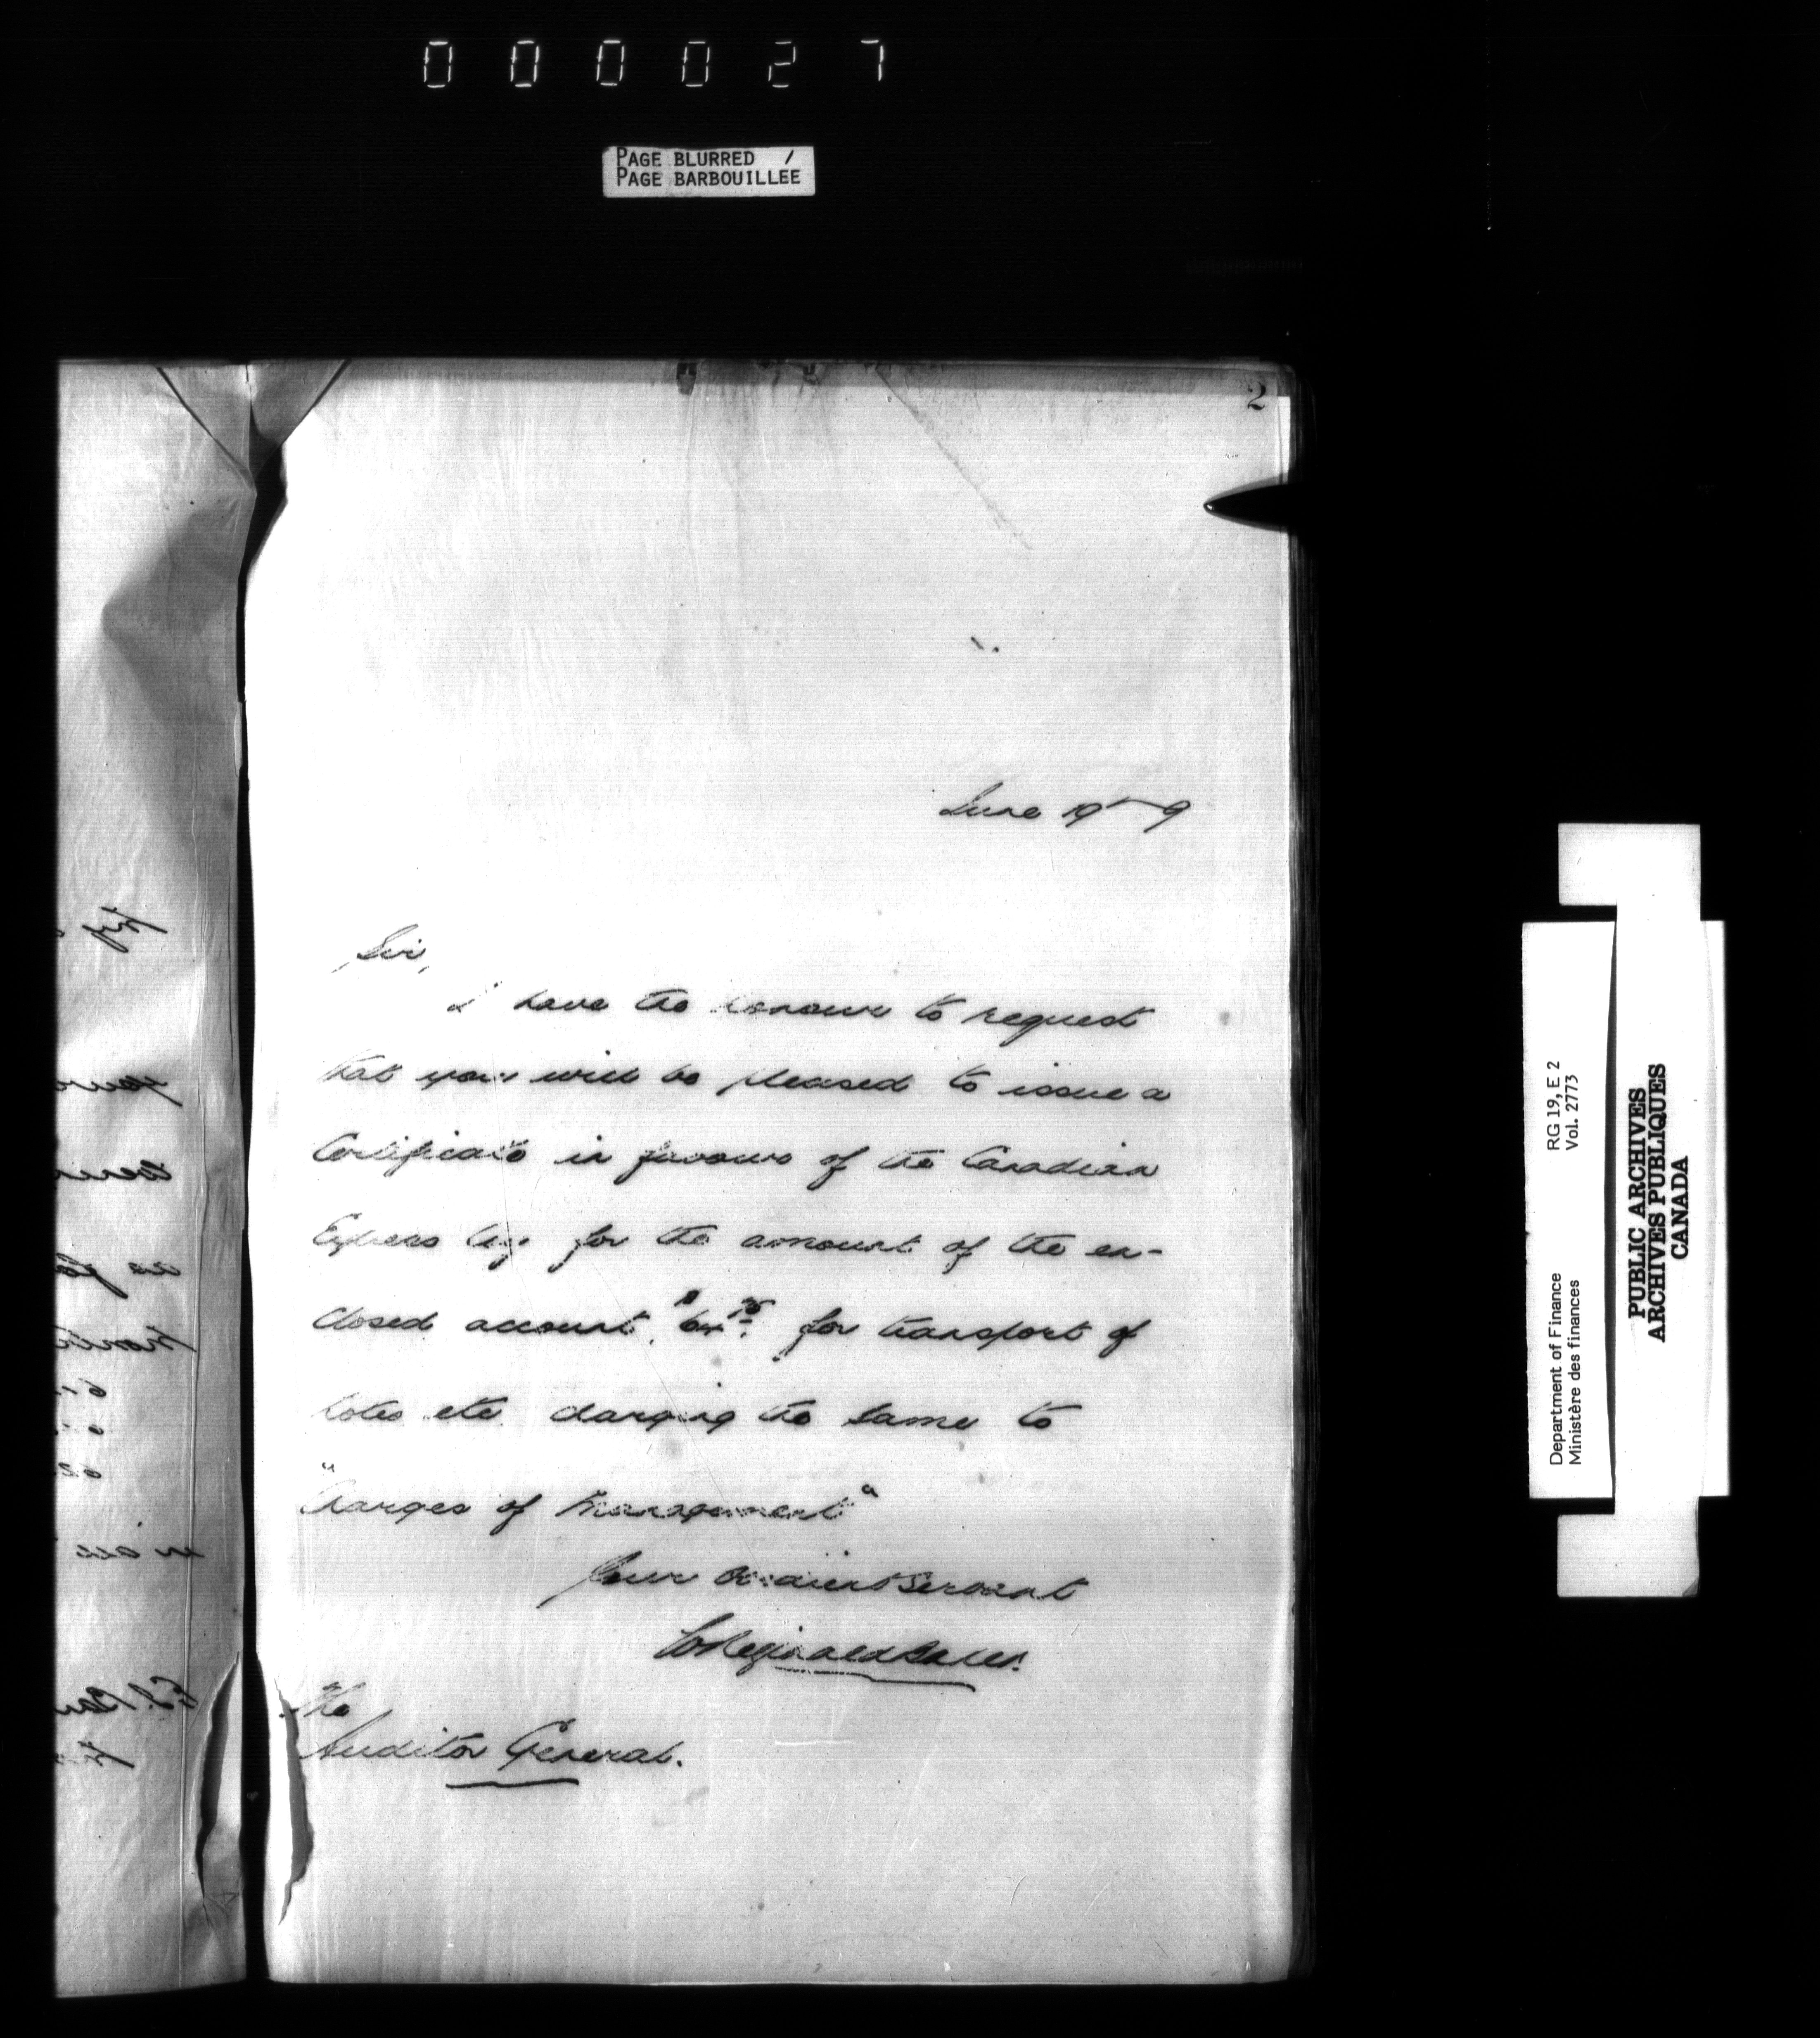 000027
PAGE BLURRED /
PAGE BARBOUILLÉE
2
June 19 9
Sir,
I have the honour to request
that you will be pleased to issue a
Certificate in favour of the Canadian
Express Coy. for the amount of the en-
closed account, $64.75 for transport of
notes etc. charging the same to
"Charges of Management"
Your obedient servant
The
Auditor General.
RG 19, E 2
Vol. 2773
Department of Finance
Ministère des finances
PUBLIC ARCHIVES
ARCHIVES PUBLIQUES
CANADA